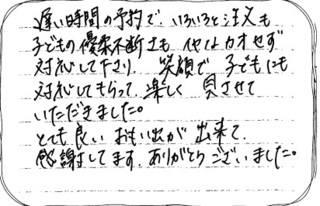 遅い時間の予約で、いろいろと注文も
子どもの優柔不断さも イヤなカオせず
対応して下さり、笑顔で 子どもにも
対応してもらって、楽しく 買させて
いただきました。
とても良い おもい出が 出来て
感謝してます。ありがとうございました。